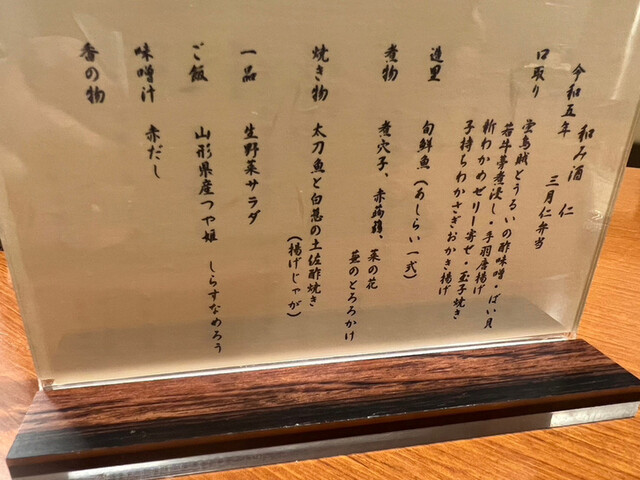 令和五年　三月仁弁当
和み酒　仁
口取り　蛍烏賊とうるいの酢味噌・ばい貝
若牛蒡煮浸し・手羽唐揚げ
新わかめゼリー寄せ・玉子焼き
子持ちわかさぎおかき揚げ
造里　旬鮮魚（あしらい一式）
煮物　煮穴子、赤蒟蒻、菜の花
蕪のとろろかけ
焼き物　太刀魚と白葱の土佐酢焼き
（揚げじゃが）
一品　生野菜サラダ
ご飯　山形県産つや姫　しらすなめろう
味噌汁　赤だし
香の物